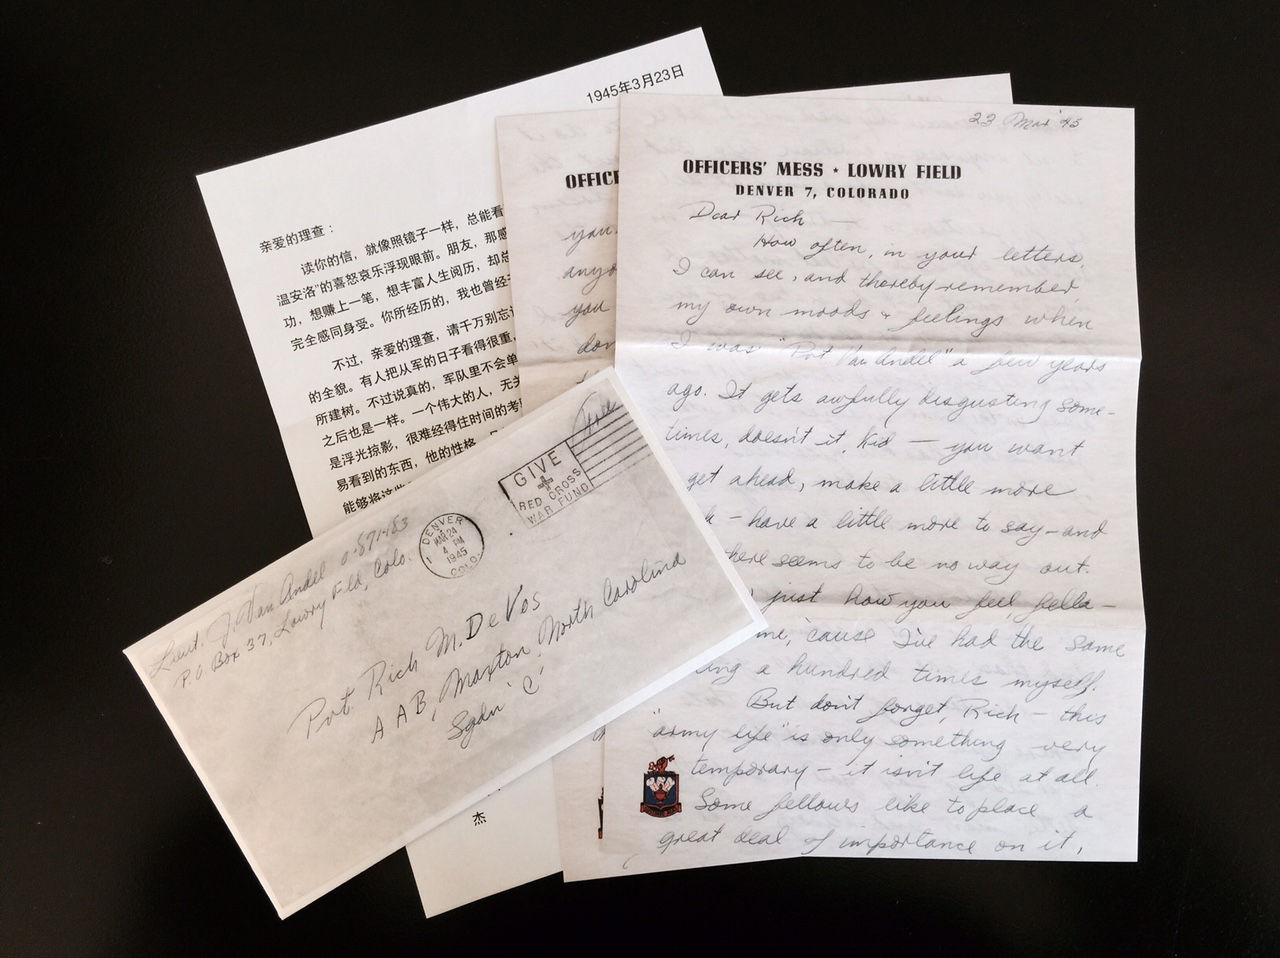 1945年3月23日
亲爱的理查：
读你的信，就像照镜子一样，总能看
温安洛"的喜怒哀乐浮现眼前。朋友，那感
功，想赚上一笔，想丰富人生阅历，却总
完全感同身受。你所经历的，我也曾经
不过，亲爱的理查，请千万别忘
的全貌。有人把从军的日子看得很重，
所建树。不过说真的，军队里不会单
之后也是一样。一个伟大的人，无关
是浮光掠影，很难经得住时间的考
易看到的东西，他的性格，
能够将这些
杰
OFFICE
you
anyo
you
don
23 Mar '45
OFFICERS' MESS ★ LOWRY FIELD
DENVER 7, COLORADO
Dear Rich —
How often, in your letters,
I can see, and thereby remember
my own moods & feelings when
I was "Pvt Van Andel" a few years
ago. It gets awfully disgusting some-
times, doesn't it, kid — you want
get ahead, make a little more
- have a little more to say - and
here seems to be no way out.
just how you feel, fella -
me, 'cause I've had the same
ing a hundred times myself.
But don't forget, Rich - this
"army life" is only something very
temporary - it isn't life at all.
Some fellows like to place a
great deal of importance on it,
Lieut. J. Van Andel 0-871483
P.O. Box 37, Lowry Fld, Colo.
DENVER
MAR 24
4 PM
1945
COLO.
1
GIVE
RED CROSS
WAR FUND
Free
Pvt. Rich M. DeVos
A A B, Maxton, North Carolina
Sqdn 'C'